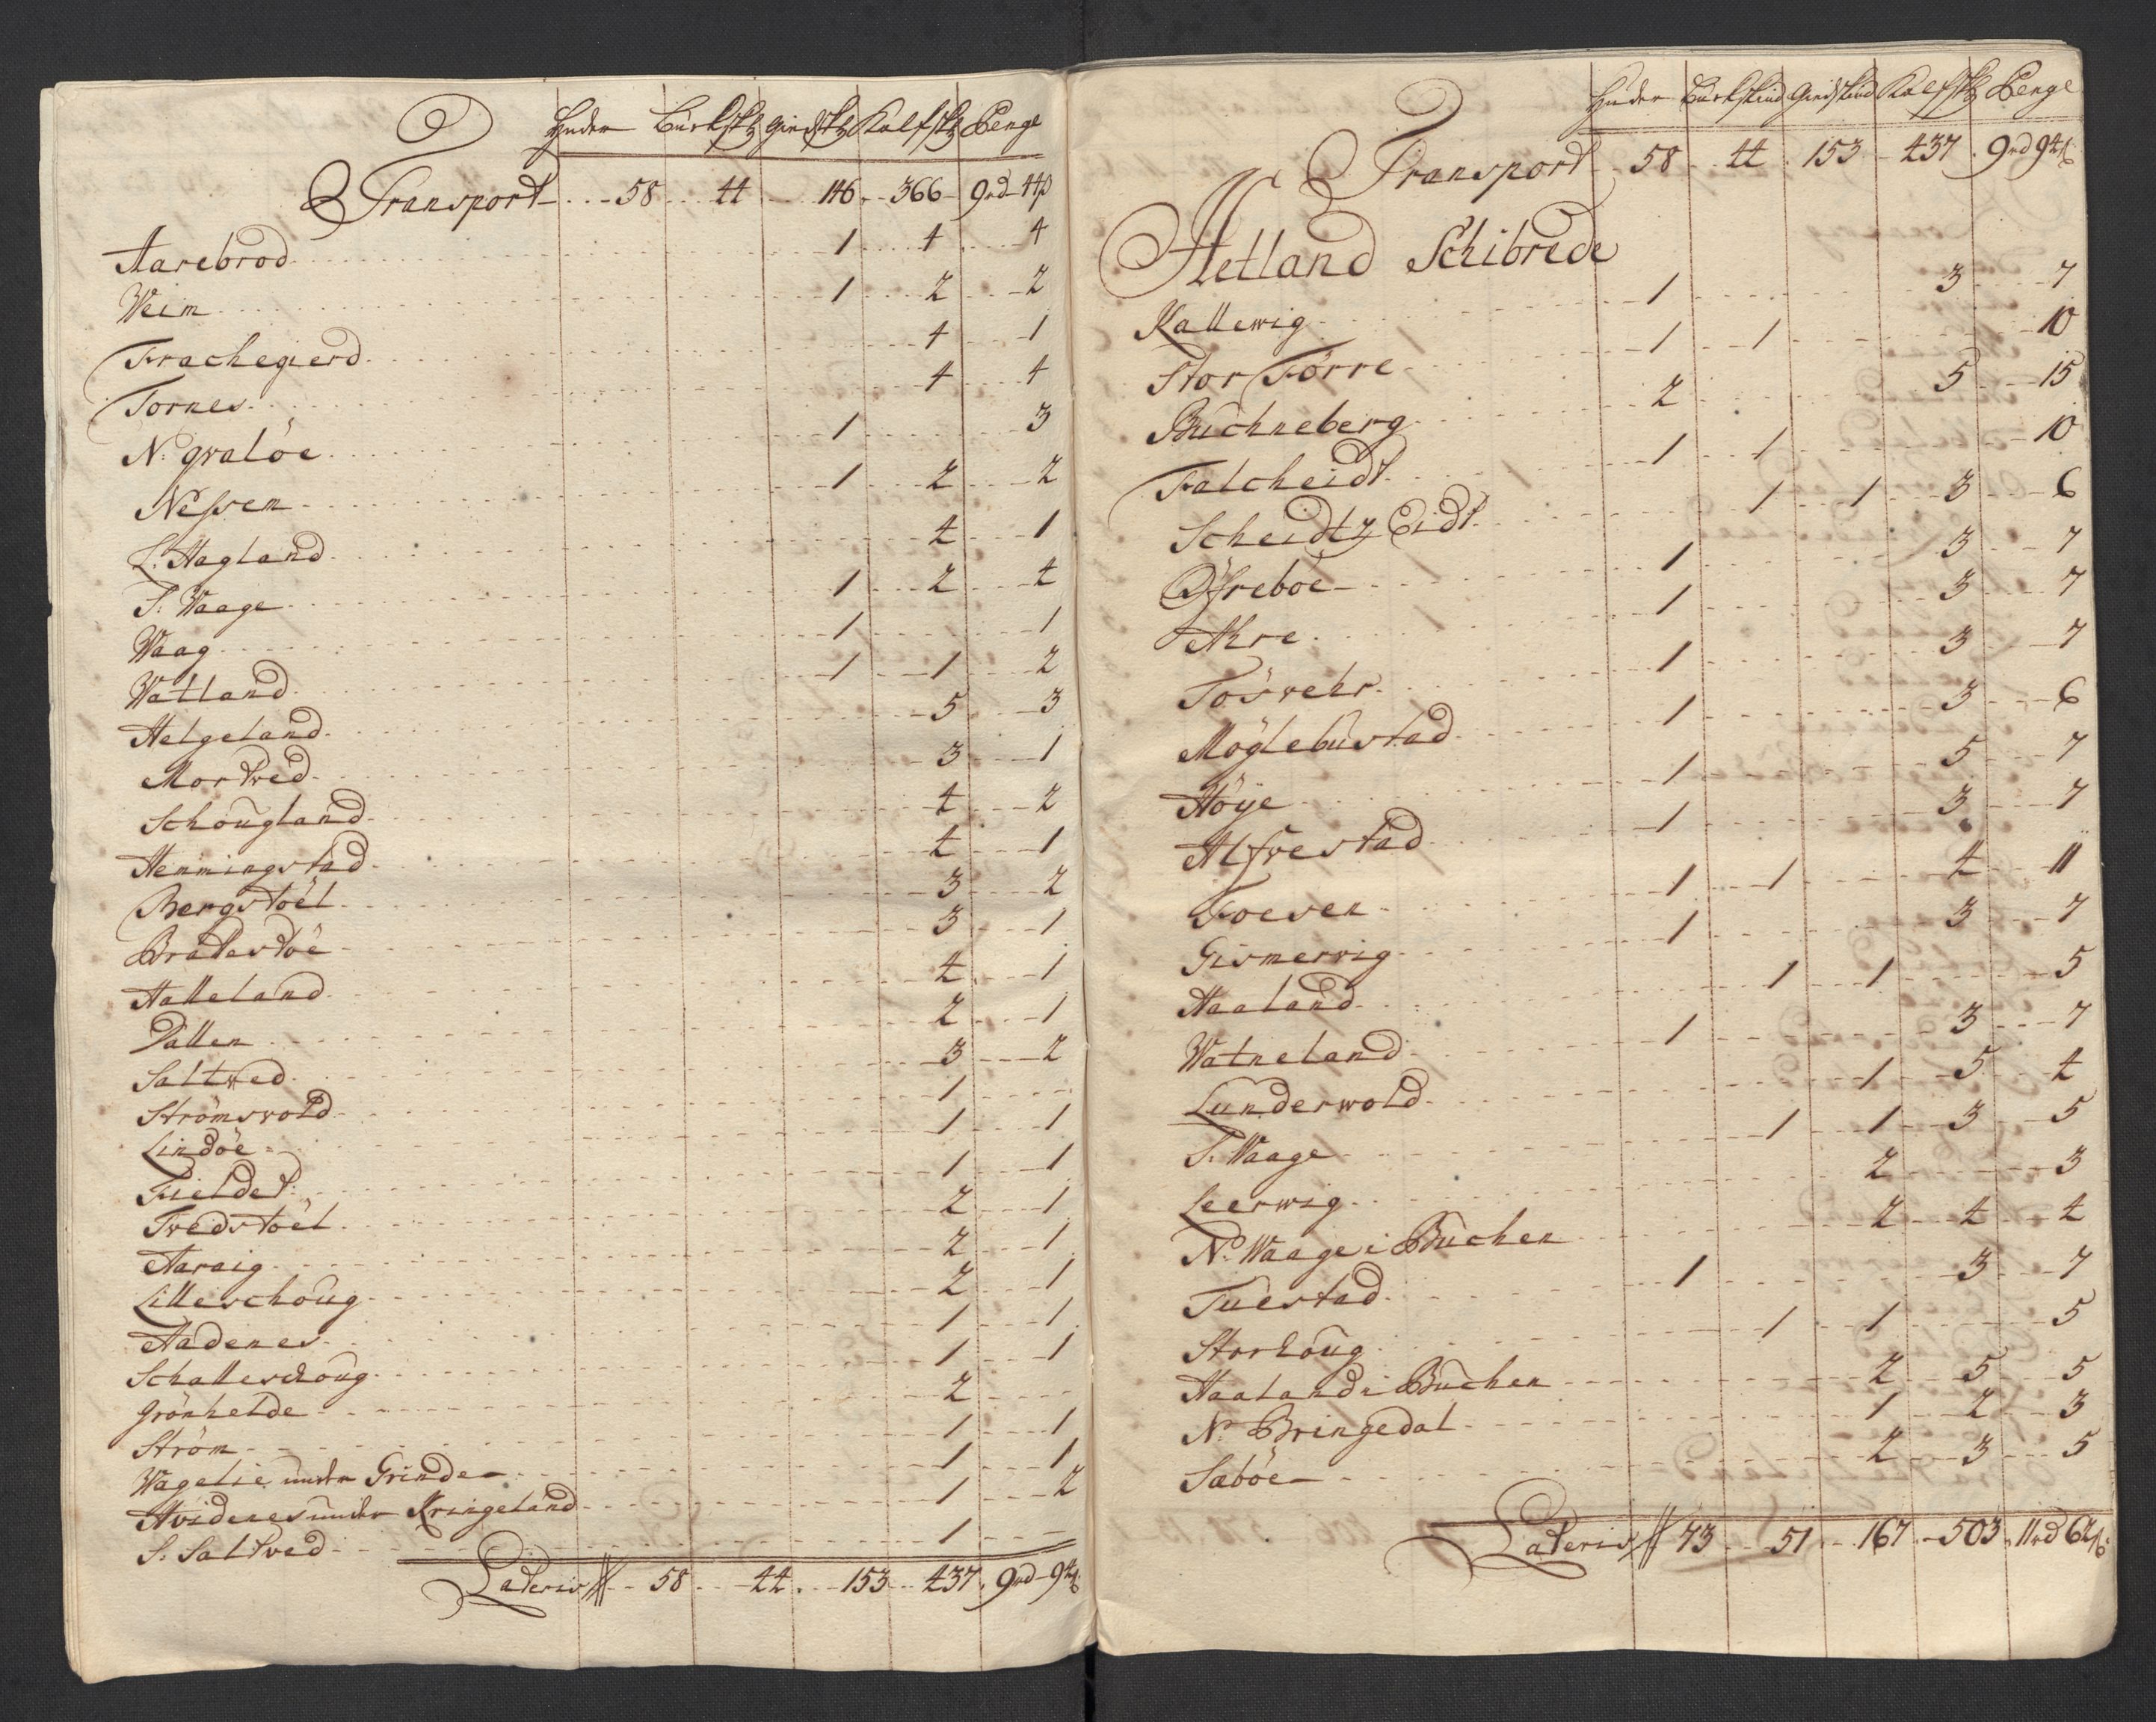 Huder Buckskz giedskz Kalfskz Penge
Transport 58 44 146 366 9rd 44β
Aarebrod 1 4 4
Weim 1 2 2
Frachegierd 4 1
Tornes 4 4
N. gvaløe 1 3
Nessen 1 2 2
L. Hagland 4 1
S. Waage 1 2 4
Waag 1 1
Watland 1 1 2
Helgeland 5 3
Mortved 3 1
Schougland 4 2
Hemmingstad 4 1
Bergstøel 3 2
Bratestøe 3 1
Halleland 4 1
Dallen 2 1
Saltwed 3 2
Strømsvold 1
Lindøe 1 1
Fieldet 1 1
Tvedstøel 2 1
Aaraig 2 1
Lilleschoug 2 1
Aadenes 1 1
Schalleschoug 1 1
grønhelde 2
Strøm 1 1
Wagelie under Grinde 1 1
Hvidenes under Kringeland 1 2
S. Saltved 1
Lateris 58 44 153 437 9rd 94β
Huder Buckskind giedskind Kalfskz Penge
Transport 58 44 153 437 9rd 94β
Hetland Schibrede
Kallewig 1 3 7
Stor Førre 1 1 10
Buchneberg 2 5 15
Falcheidt 1 1 10
Scheidtz Eidt 1 1 3 6
Øfreboe 1 3 7
Ahre 1 3 7
Tøsvehr 1 3 7
Møglebustad 1 3 6
Høye 1 5 7
Alfvestad 1 3 7
Foesen 1 1 4 11
Gismervig 1 3 7
Haaland 1 1 5
Watneland 1 3 7
Lunderwold 1 5 4
S. Waage 1 1 3 5
Leerwig 2 3
N. Waage i Buchen 2 4 4
Tuestad 1 3 7
Storhoug 1 1 5
Haaland i Buchen 2 5 5
N. Bringedal 1 2 3
Sæbøe 2 3 5
Lateris 73 51 167 503 11rd 62β